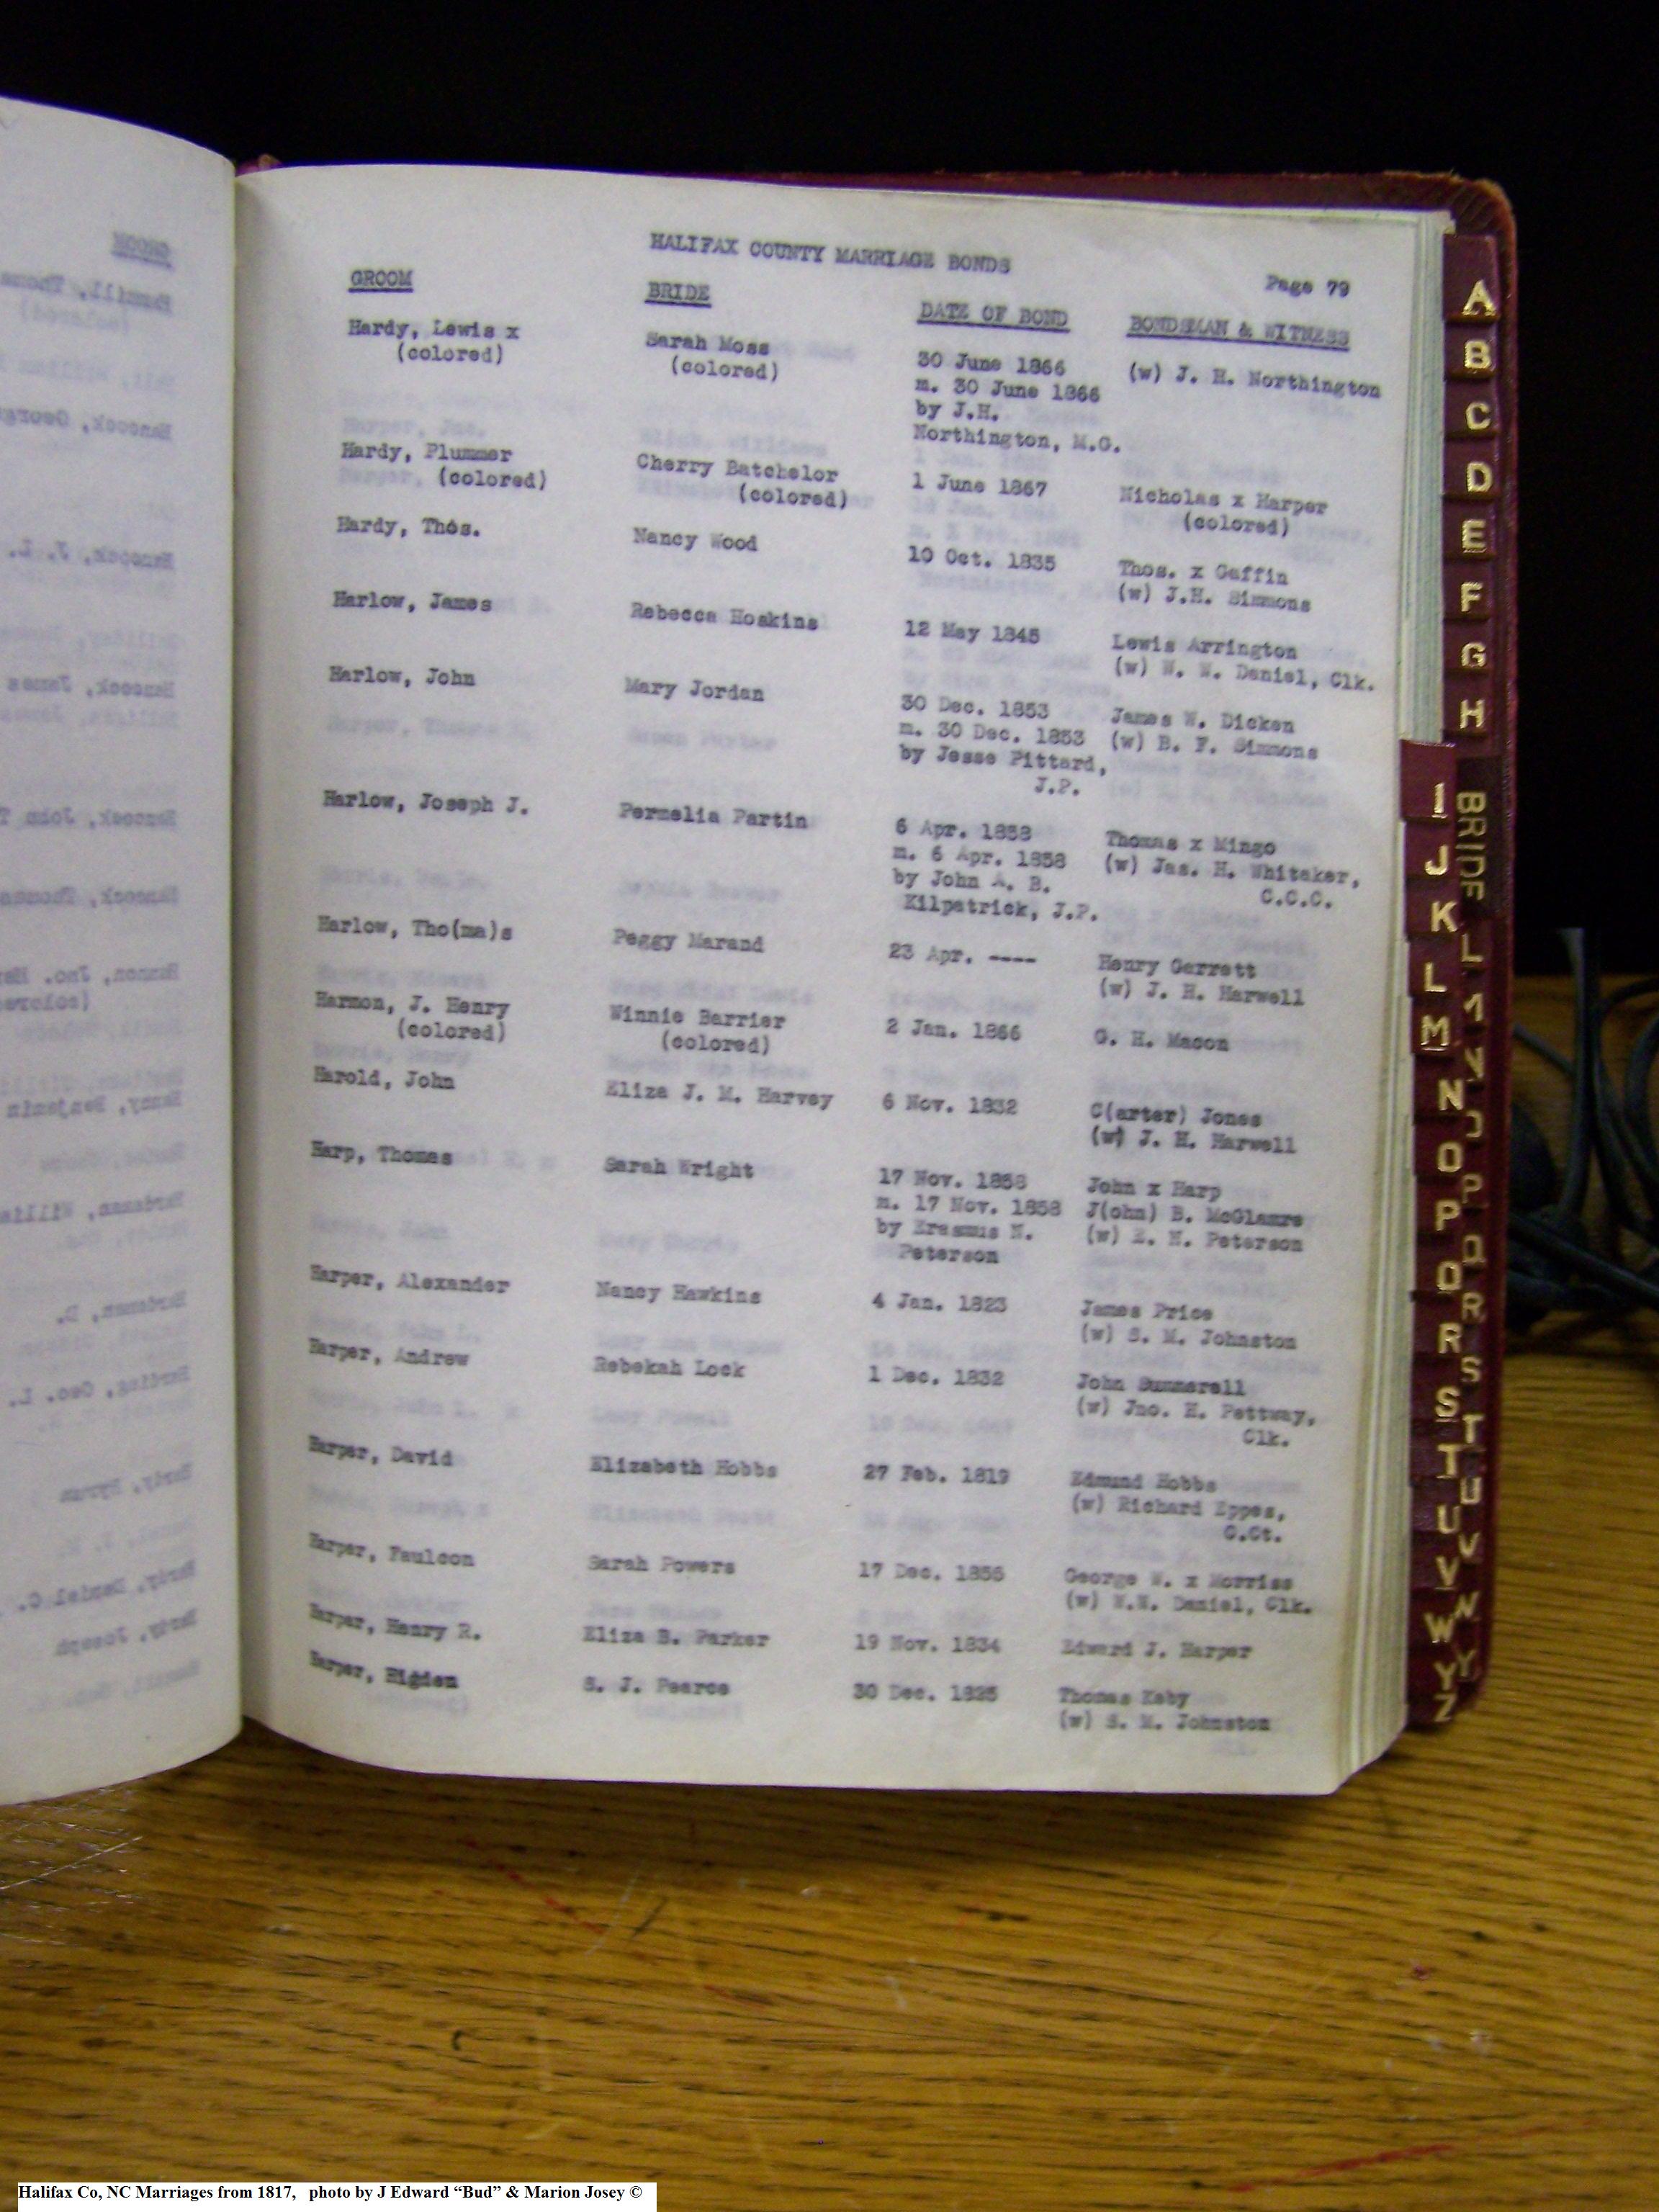 HALIFAX COUNTY MARRIAGE BONDS
Page 79
GROOM BRIDE DATE OF BOND BONDSMAN & WITNESS
Hardy, Lewis x Sarah Moss 30 June 1866 (w) J. H. Northington
(colored) (colored) m. 30 June 1866
by J.H.
Northington, M.G.
Hardy, Plummer Cherry Batchelor 1 June 1867 Nicholas x Harper
(colored) (colored) (colored)
Hardy, Thos. Nancy Wood 10 Oct. 1835 Thos. x Gaffin
(w) J.H. Simmons
Harlow, James Rebecca Hoskins 12 May 1845 Lewis Arrington
(w) W. W. Daniel, Clk.
Harlow, John Mary Jordan 30 Dec. 1853 James W. Dicken
m. 30 Dec. 1853 (w) B. F. Simmons
by Jesse Pittard,
J.P.
Harlow, Joseph J. Permelia Partin 6 Apr. 1858 Thomas x Mingo
m. 6 Apr. 1858 (w) Jas. H. Whitaker,
by John A. B. C.C.C.
Kilpatrick, J.P.
Harlow, Tho(ma)s Peggy Marand 23 Apr. ---- Henry Garrett
(w) J. H. Harwell
Harmon, J. Henry Winnie Barrier 2 Jan. 1866 G. H. Macon
(colored) (colored)
Harold, John Eliza J. M. Harvey 6 Nov. 1832 C(arter) Jones
(w) J. H. Harwell
Harp, Thomas Sarah Wright 17 Nov. 1858 John x Harp
m. 17 Nov. 1858 J(ohn) B. McGlamre
by Erasmus N. (w) E. N. Peterson
Peterson
Harper, Alexander Nancy Hawkins 4 Jan. 1823 James Price
(w) S. M. Johnston
Harper, Andrew Rebekah Lock 1 Dec. 1832 John Summerell
(w) Jno. H. Pettway,
Clk.
Harper, David Elizabeth Hobbs 27 Feb. 1819 Edmund Hobbs
(w) Richard Eppes,
C.Ct.
Harper, Faulcon Sarah Powers 17 Dec. 1856 George W. x Morriss
(w) W.W. Daniel, Clk.
Harper, Henry R. Eliza B. Parker 19 Nov. 1834 Edward J. Harper
Harper, Higden S. J. Pearce 30 Dec. 1825 Thomas Kaby
(w) S. M. Johnston
A
B
C
D
E
F
G
H
I
J
K
L
M
N
O
P
Q
R
S
T
U
V
W
Y
Z
BRIDE
Halifax Co, NC Marriages from 1817, photo by J Edward “Bud” & Marion Josey ©